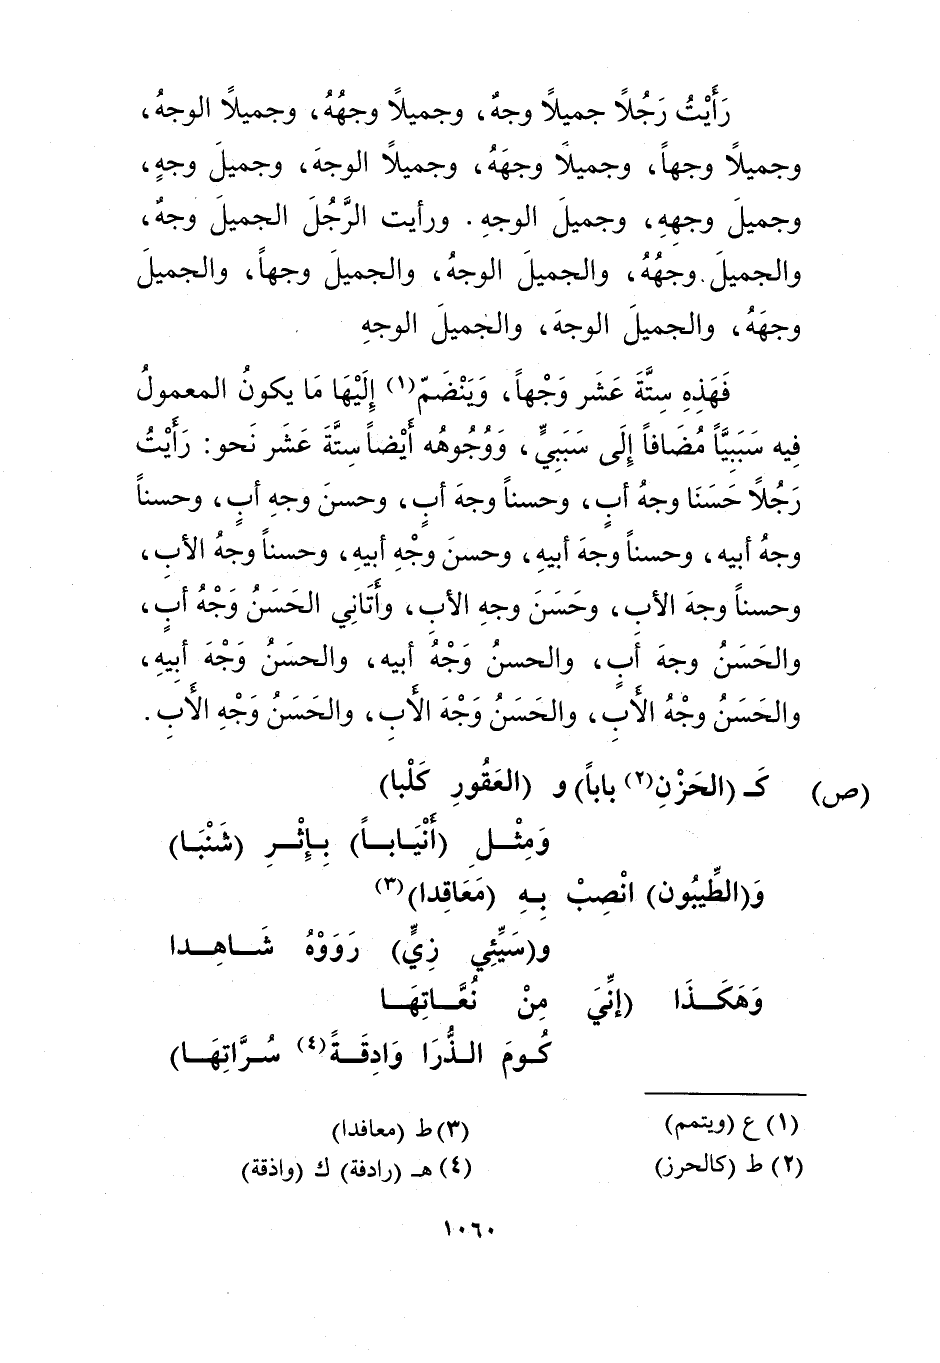 رَأَيْتُ رَجُلًا جميلًا وجهٌ، وجميلًا وجهُهُ، وجميلًا الوجهُ،
وجميلًا وجهاً، وجميلًا وجهَهُ، وجميلًا الوجهَ، وجميلَ وجهٍ،
وجميلَ وجههِ، وجميلَ الوجهِ. ورأيت الرَّجُلَ الجميلَ وجهٌ،
والجميلَ وجهُهُ، والجميلَ الوجهُ، والجميلَ وجهاً، والجميلَ
وجهَهُ، والجميلَ الوجهَ، والجميلَ الوجهِ
فَهَذِهِ سِتَّةَ عَشَر وَجْهاً، وَيَنْضَمّ(١) إِلَيْهَا مَا يكونُ المعمولُ
فيه سَبَبِيَّاً مُضَافاً إِلَى سَبَبِيٍّ، وَوُجُوهُه أَيْضاً سِتَّةَ عَشَر نَحو: رَأَيْتُ
رَجُلًا حَسَنَا وجهُ أبٍ، وحسناً وجهَ أبٍ، وحسنَ وجهِ أبٍ، وحسناً
وجهُ أبيه، وحسناً وجهَ أبيهِ، وحسنَ وجْهِ أبيهِ، وحسناً وجهُ الأبِ،
وحسناً وجهَ الأبِ، وحَسَنَ وجهِ الأبِ، وأَتَانِي الحَسَنُ وَجْهُ أبٍ،
والحَسَنُ وجهَ أَبٍ، والحسنُ وَجْهُ أبيه، والحسَنُ وَجْهَ أبيهِ،
والحَسَنُ وجْهُ الأَبِ، والحَسَنُ وَجْهَ الأَبِ، والحَسَنُ وَجْهِ الأَبِ.
(ص) كَـ (الحَزْنِ(٢) باباً) و (العَقُورِ كَلْبا)
وَمِثْـلِ (أَنْيَـابـاً) بـإِثْـرِ (شَنْبَـا)
وَ(الطِّيبُون) انْصِبْ بِـهِ (مَعَاقِدا)(٣)
و(سَيِّئِي زِيٍّ) رَوَوْهُ شَـاهِـدا
وَهَكَـذَا (إنِّيَ مِنْ نُعَّـاتِهَـا
كُـومَ الـذُّرَا وَادِقَـةً(٤) سُـرَّاتِهَـا)
(١) ع (ويتمم)
(٢) ط (كالحرز)
(٣) ط (معافدا)
(٤) هـ (رادفة) ك (واذقة)
١٠٦٠